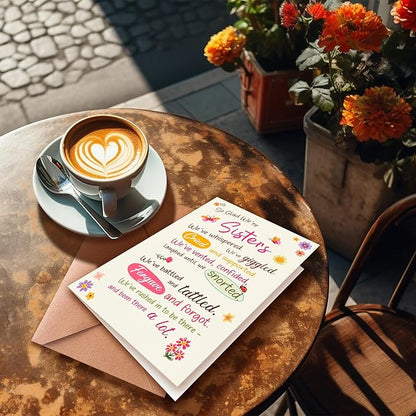 So Glad We're
Sisters
We've whispered,
We've giggled.
Cried
We've vented, confided,
and supported
Laughed until we snorted
We've battled and tattled.
Forgiven and forgot
We've rushed in to be there ~
and been there a lot.